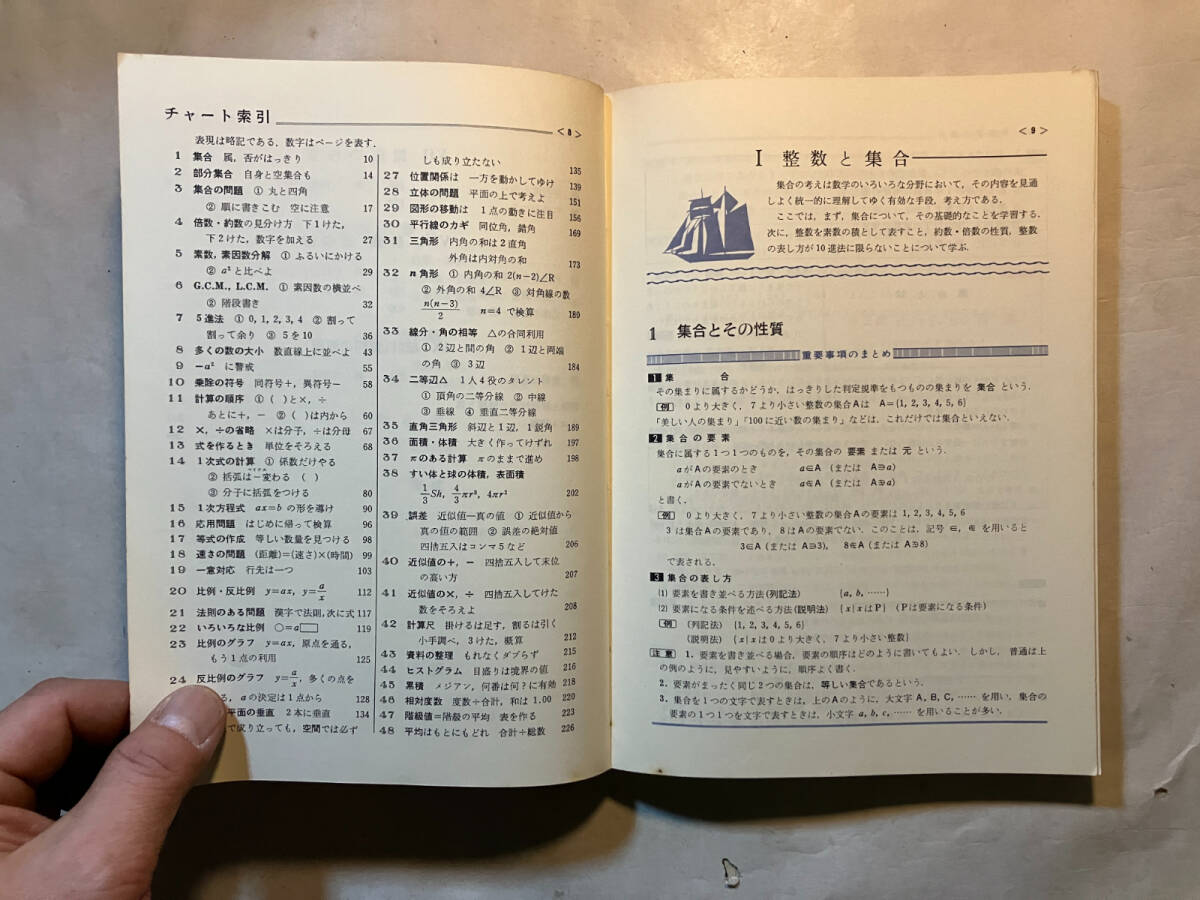 チャート索引
<8>
表現は略記である.数字はページを表す.
1 集合 属,否がはっきり 10
2 部分集合 自身と空集合も 14
3 集合の問題 ① 丸と四角
② 順に書きこむ 空に注意 17
4 倍数・約数の見分け方 下1けた,
下2けた,数字を加える 27
5 素数,素因数分解 ① ふるいにかける
② a²と比べよ 29
6 G.C.M., L.C.M. ① 素因数の横並べ
② 階段書き 32
7 5進法 ① 0, 1, 2, 3, 4 ② 割って
割って余り ③ 5を10 36
8 多くの数の大小 数直線上に並べよ 43
9 −a² に警戒 55
10 乗除の符号 同符号+,異符号− 58
11 計算の順序 ① ( )と×, ÷
あとに+, − ② ( )は内から 60
12 ×, ÷の省略 ×は分子, ÷は分母 67
13 式を作るとき 単位をそろえる 68
14 1次式の計算 ① 係数だけやる
② 括弧は−変わる ( )
③ 分子に括弧をつける 80
15 1次方程式 ax=b の形を導け 90
16 応用問題 はじめに帰って検算 96
17 等式の作成 等しい数量を見つける 98
18 速さの問題 (距離)=(速さ)×(時間) 99
19 一意対応 行先は一つ 103
20 比例・反比例 y=ax, y=a/x 112
21 法則のある問題 漢字で法則,次に式 117
22 いろいろな比例 ○=a□ 119
23 比例のグラフ y=ax, 原点を通る,
もう1点の利用 125
24 反比例のグラフ y=a/x, 多くの点を
る, aの決定は1点から 128
平面の垂直 2本に垂直 134
で成り立っても,空間では必ず
しも成り立たない 135
27 位置関係は 一方を動かしてゆけ 139
28 立体の問題 平面の上で考えよ 151
29 図形の移動は 1点の動きに注目 156
30 平行線のカギ 同位角,錯角 169
31 三角形 内角の和は2直角
外角は内対角の和 173
32 n角形 ① 内角の和 2(n−2)∠R
② 外角の和 4∠R ③ 対角線の数
n(n−3)/2 n=4 で検算 180
33 線分・角の相等 △の合同利用
① 2辺と間の角 ② 1辺と両端
の角 ③ 3辺 184
34 二等辺△ 1人4役のタレント
① 頂角の二等分線 ② 中線
③ 垂線 ④ 垂直二等分線
35 直角三角形 斜辺と1辺,1鋭角 189
36 面積・体積 大きく作ってけずれ 197
37 πのある計算 πのままで進め 198
38 すい体と球の体積,表面積
1/3Sh, 4/3πr³, 4πr² 202
39 誤差 近似値−真の値 ① 近似値から
真の値の範囲 ② 誤差の絶対値
四捨五入はコンマ5など 206
40 近似値の+, − 四捨五入して末位
の高い方 207
41 近似値の×, ÷ 四捨五入してけた
数をそろえよ 208
42 計算尺 掛けるは足す,割るは引く
小手調べ,3けた,概算 212
43 資料の整理 もれなくダブらず 215
44 ヒストグラム 目盛りは境界の値 216
45 累積 メジアン,何番は何?に有効 218
46 相対度数 度数÷合計,和は1.00 220
47 階級値=階級の平均 表を作る 223
48 平均はもとにもどれ 合計÷総数 226
<9>
I 整数と集合
集合の考えは数学のいろいろな分野において,その内容を見通
しよく統一的に理解してゆく有効な手段,考え方である.
ここでは,まず,集合について,その基礎的なことを学習する.
次に,整数を素数の積として表すこと,約数・倍数の性質,整数
の表し方が10進法に限らないことについて学ぶ.
1 集合とその性質
重要事項のまとめ
1 集合
その集まりに属するかどうか,はっきりした判定規準をもつものの集まりを 集合 という.
例 0より大きく,7より小さい整数の集合Aは A={1, 2, 3, 4, 5, 6}
「美しい人の集まり」「100に近い数の集まり」などは,これだけでは集合といえない.
2 集合の要素
集合に属する1つ1つのものを,その集合の 要素 または 元 という.
aがAの要素のとき a∈A (または A∋a)
aがAの要素でないとき a∉A (または A∌a)
と書く.
例 0より大きく,7より小さい整数の集合Aの要素は 1, 2, 3, 4, 5, 6
3は集合Aの要素であり,8はAの要素でない.このことは,記号 ∈, ∉ を用いると
3∈A (または A∋3), 8∉A (または A∌8)
で表される.
3 集合の表し方
(1) 要素を書き並べる方法(列記法) {a, b, ……}
(2) 要素になる条件を述べる方法(説明法) {x|xはP} (Pは要素になる条件)
例 (列記法) {1, 2, 3, 4, 5, 6}
(説明法) {x|xは0より大きく,7より小さい整数}
注意 1.要素を書き並べる場合,要素の順序はどのように書いてもよい.しかし,普通は上
の例のように,見やすいように,順序よく書く.
2.要素がまったく同じ2つの集合は,等しい集合であるという.
3.集合を1つの文字で表すときは,上のAのように,大文字 A, B, C, …… を用い,集合の
要素の1つ1つを文字で表すときは,小文字 a, b, c, …… を用いることが多い.